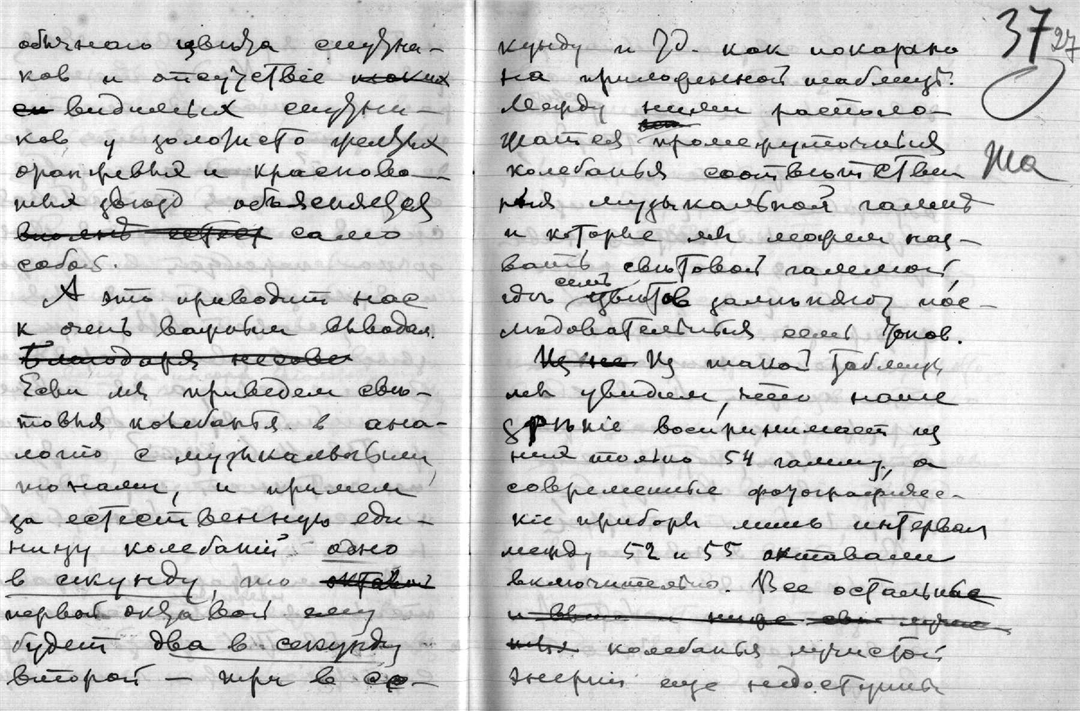 обычного цвета спутни-
ков и отсутствіе таких
видимых спутни-
ков у золотисто желтых
оранжевых и краснова-
тых звѣзд объясняется
вполнѣ само
собой.
А это приводит нас
к очень важным выводам.
Благодаря
Если мы приведем свѣ-
товыя колебанья в ана-
логію с музыкальными
тонами, и примем
за естественную еди-
ницу колебаній одно
в секунду, то октавой
первой октавой ему
будет два в секунду
второй — три в се-
кунду и т д. как показано
на приложенной таблицѣ.
Между ними располо-
жатся промежуточныя
колебанья соотвѣтствен
ныя музыкальной гаммѣ
и которые мы можем наз-
вать свѣтовой гаммой
гдѣ семь цвѣтов замѣняют пос-
лѣдовательныя семь тонов.
Из не Из такой таблицы
мы увидим, что наше
зрѣніе воспринимает из
них только 54 гамму, а
современные фотографичес-
кіе приборы лишь интервал
между 52 и 55 октавами
включительно. Все остальные
колебанья лучистой
энергіи еще недоступны
37
27
та